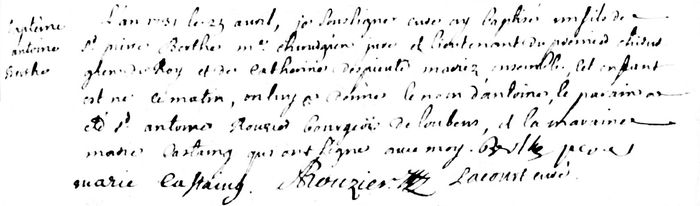 baptême
antoine
Berthe
L'an 1731 le 25 avril, je soussigner curé ay baptisé un fils de
Sr. pierre Berthe mtre chirurgien juré et lieutenant du premier chirur
gien du Roy et de Catherine mariez ensemble, cet enfant
est né ce matin, on luy a donné le nom d'antoine, le parain a
eté Sr. antoine Rouzier bourgeois de loubens, et la maraine
marie Castaing qui ont signé avec moy. Berthe pere
marie Castaing. ARouzier Lacourt curé.